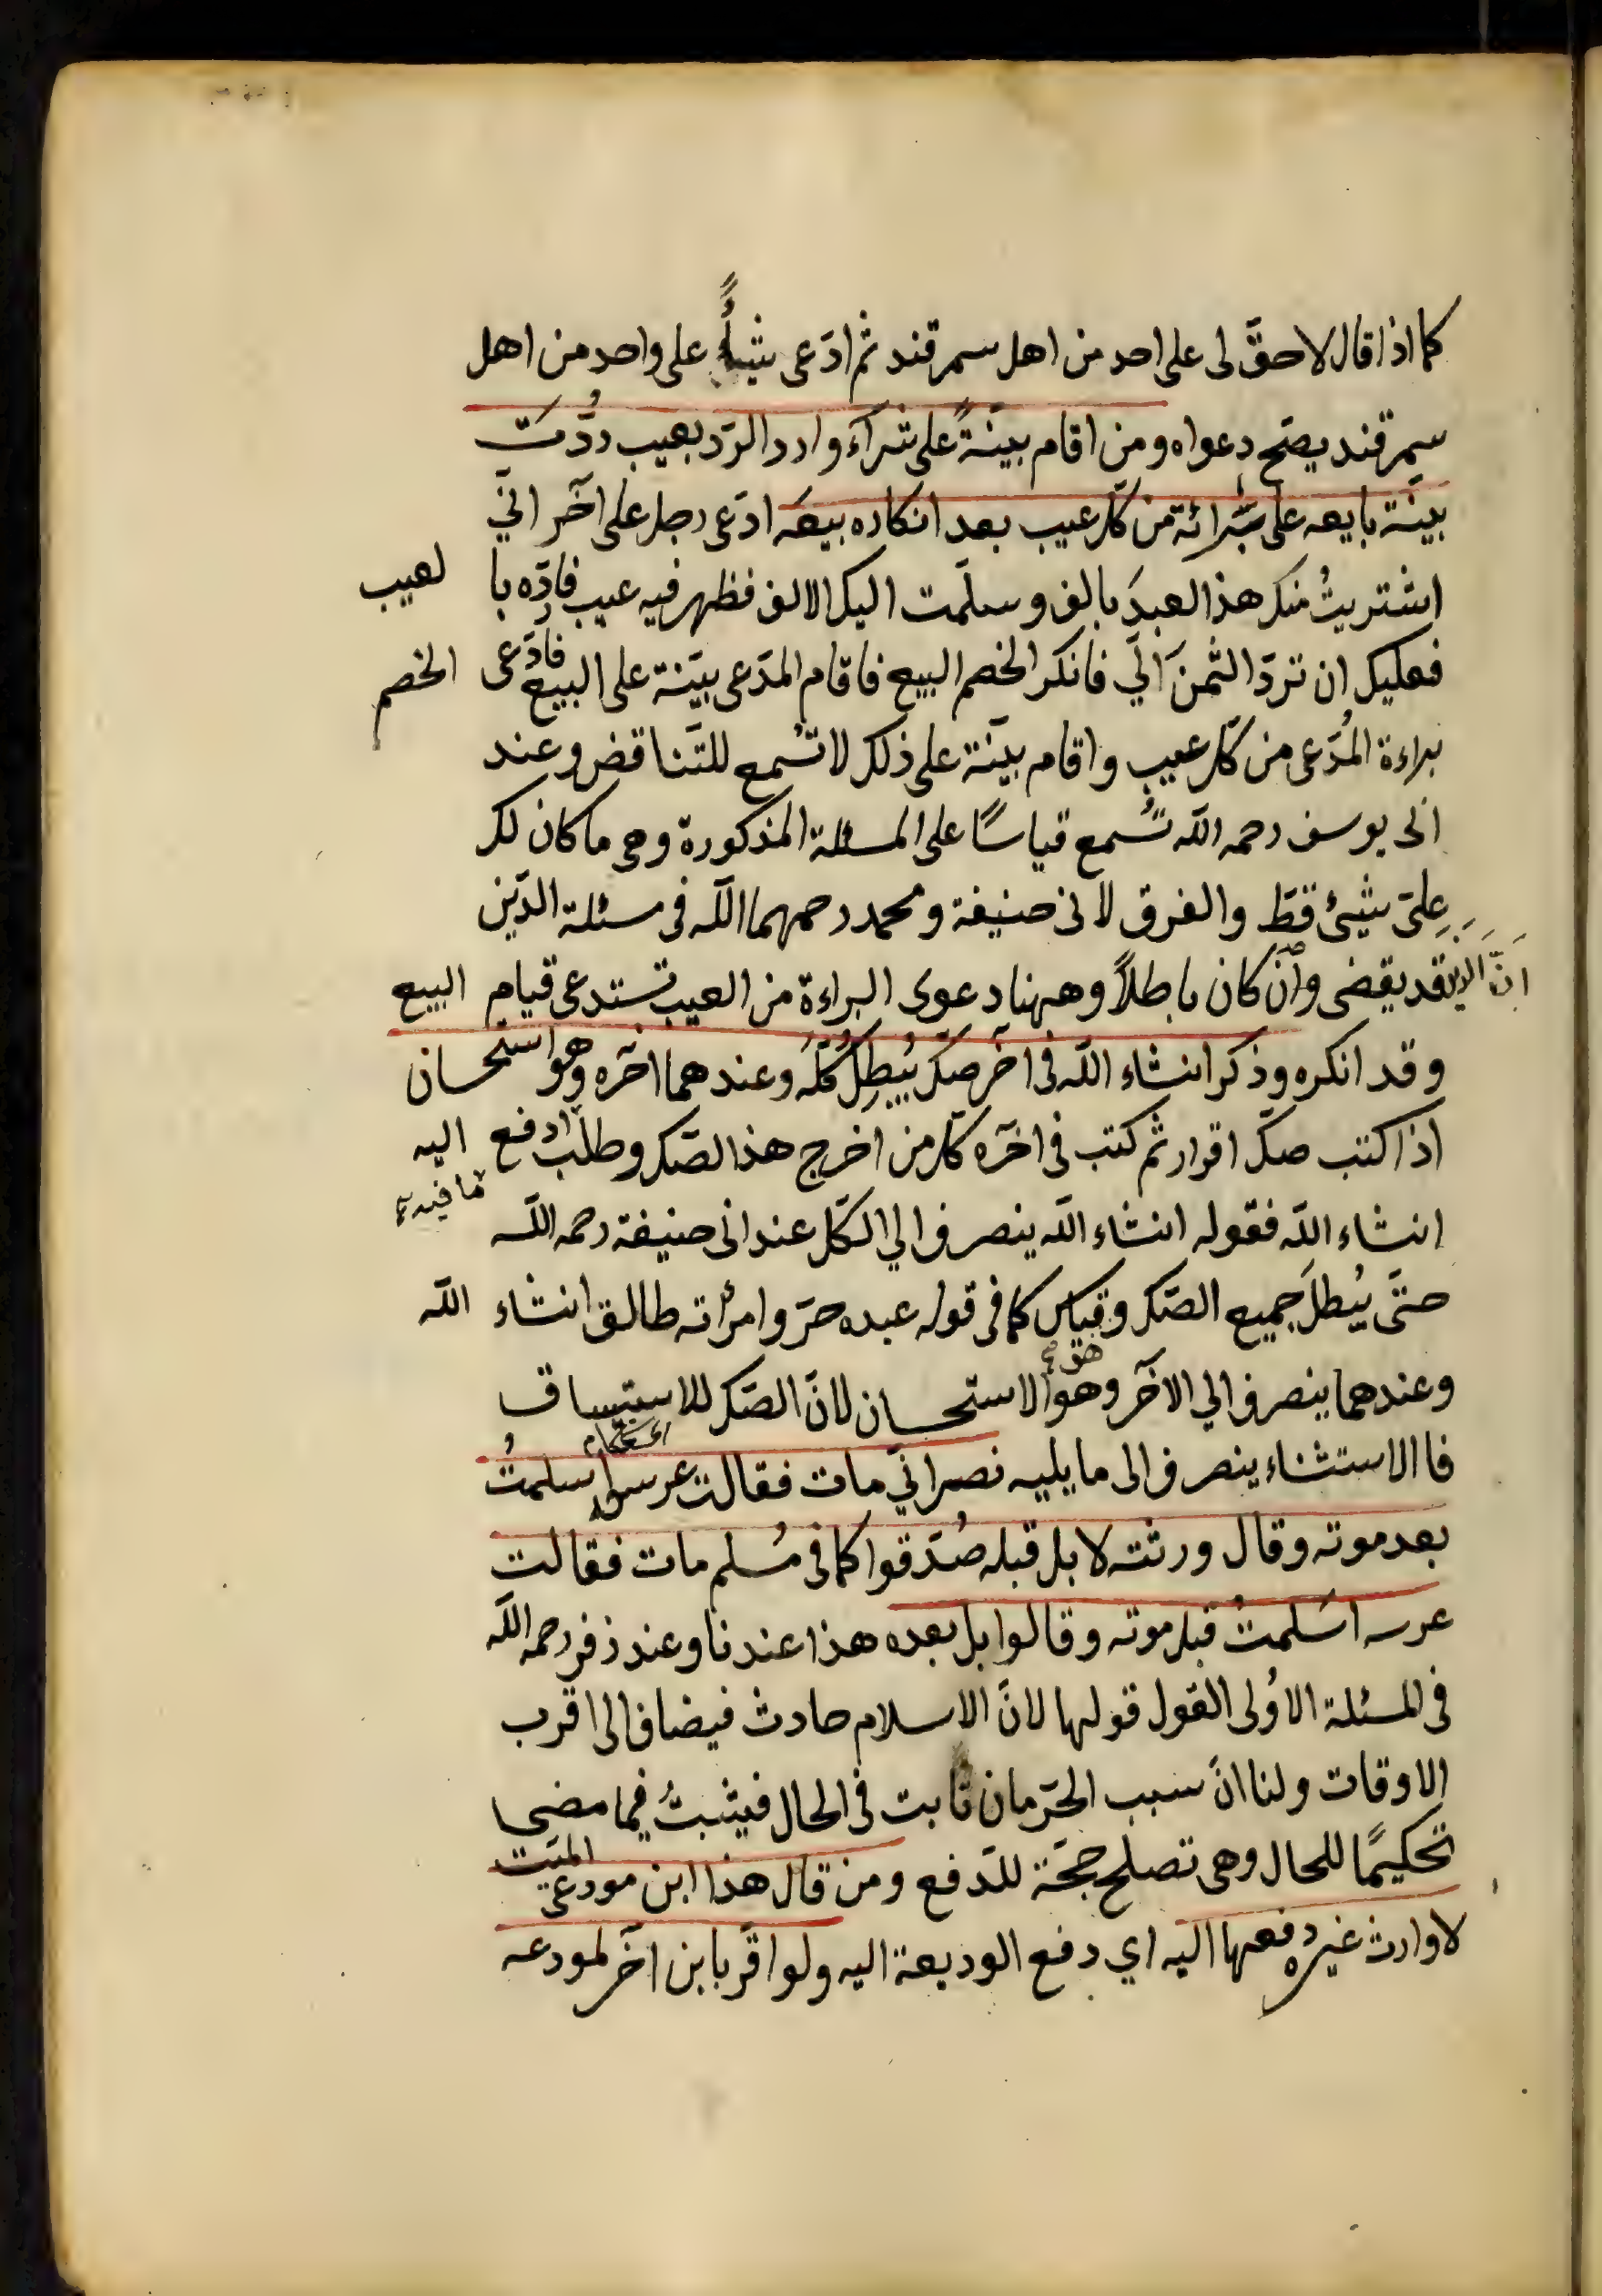 كما اذا قال لا حقَّ لى على احد من اهل سمرقند ثم ادّعى شيئاً على واحد من اهل
سمرقند يصّح دعواه ومن اقام بيّنةً على شرآء وارد الرّد بعيب رُدّت
بيّنة بايعه على برائة من كلّ عيب بعد انكاره بيعَه ادّعى رجل على آخر انّي
اشتريتُ منك هذا العبدَ بالف وسلّمت اليك الالف فظهر فيه عيب فاردّه بالعيب
فعليك ان تردّ الثّمنَ الَيّ فانكر الخصم البيع فاقام المدّعى بيّنة على البيع فادّعى الخصم
براءة المُدّعى من كلّ عيب واقام بيّنة على ذلك لا تُسمع للتّناقض وعند
ابى يوسف رحمه اللّه تُسمع قياسًا على المسئلة المذكورة وهى ما كان لك
علىّ شيئ قطّ والفرق لابى حنيفة ومحمد رحمهما اللّه فى مسئلة الدّين
انّ الدين قد يقضى وان كان باطلاً وههنا دعوى البراءة من العيب تستدعى قيام البيع
وقد انكره وذكر انشاء اللّه فى آخر صكّ يُبطِلُ كُلَّهُ وعندهما آخره وهو استحسان
اذا كتب صكّ اقرار ثم كتب فى اخره كلّ من اخرج هذا لصّك وطلب ادفع اليه
ما فيه
انشاء اللّه فقوله انشاء اللّه ينصرف الي الكّل عند ابى حنيفة رحمه اللّه
حتَّى يُبطلَ جميع الصّك وقياس كما فى قوله عبده حرّ وامرأته طالق انشاء اللّه
وعندهما ينصرف الي الآخر وهو الاستحسان لانّ الصّك للاستيساق
فا الاستثناء ينصرف الى ما يليه نصرانيّ مات فقالت عرسه اسلمتُ
بعد موته وقال ورثته لا بل قبله صُدّقوا كما فى مُسلم مات فقالت
عرسه اسلمتُ قبل موته وقالوا بل بعده هذا عندنا وعند زفر رحمه اللّه
فى المسئلة الاُولى القول قولها لانّ الاسلام حادث فيضاف الى اقرب
الاوقات ولنا انّ سبب الحّرمان ثابت فى الحال فيثبتُ فيما مضى
تحكيمًا للحال وهى تصلح حجّة للدّفع ومن قال هذا ابن مودعى الميّت
لا وارث غيره دفعها اليه اي دفع الوديعة اليه ولو اقرّ بابن آخر لمودعه